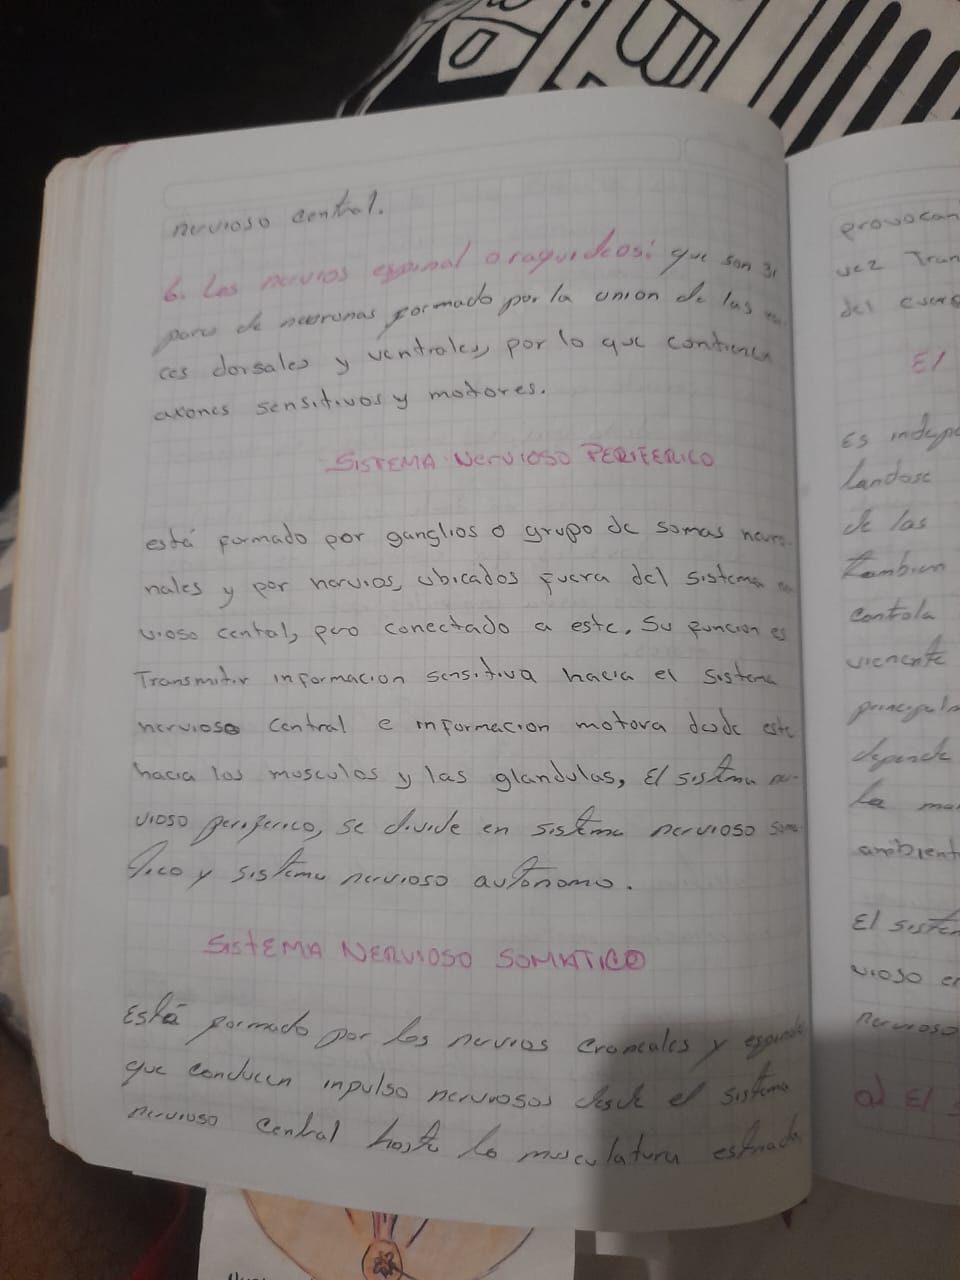 nervioso central.
6. Los nervios espinal o raquideos: que son 31
pares de neuronas formado por la union de las
ces dorsales y ventrales, por lo que contienen
axones sensitivos y motores.
SISTEMA NERVIOSO PERIFERICO
está formado por ganglios o grupo de somas neuro-
nales y por nervios, ubicados fuera del sistema
vioso central, pero conectado a este. Su funcion es
Transmitir informacion sensitiva hacia el sistema
nervioso central e informacion motora desde este
hacia los musculos y las glandulas, El sistema ner-
vioso periferico, se divide en sistema nervioso soma-
tico y sistema nervioso autónomo.
SISTEMA NERVIOSO SOMATICO
Está formado por los nervios craneales y
que conducen inpulso nerviosos desde el sistema
nervioso central hasta la musculatura estriada
provocan
vez Tran
del
El
Es indep
landose
de las
tambien
controla
vienente
depende
La
ambient
El sistem
vioso en
nervioso
a) El